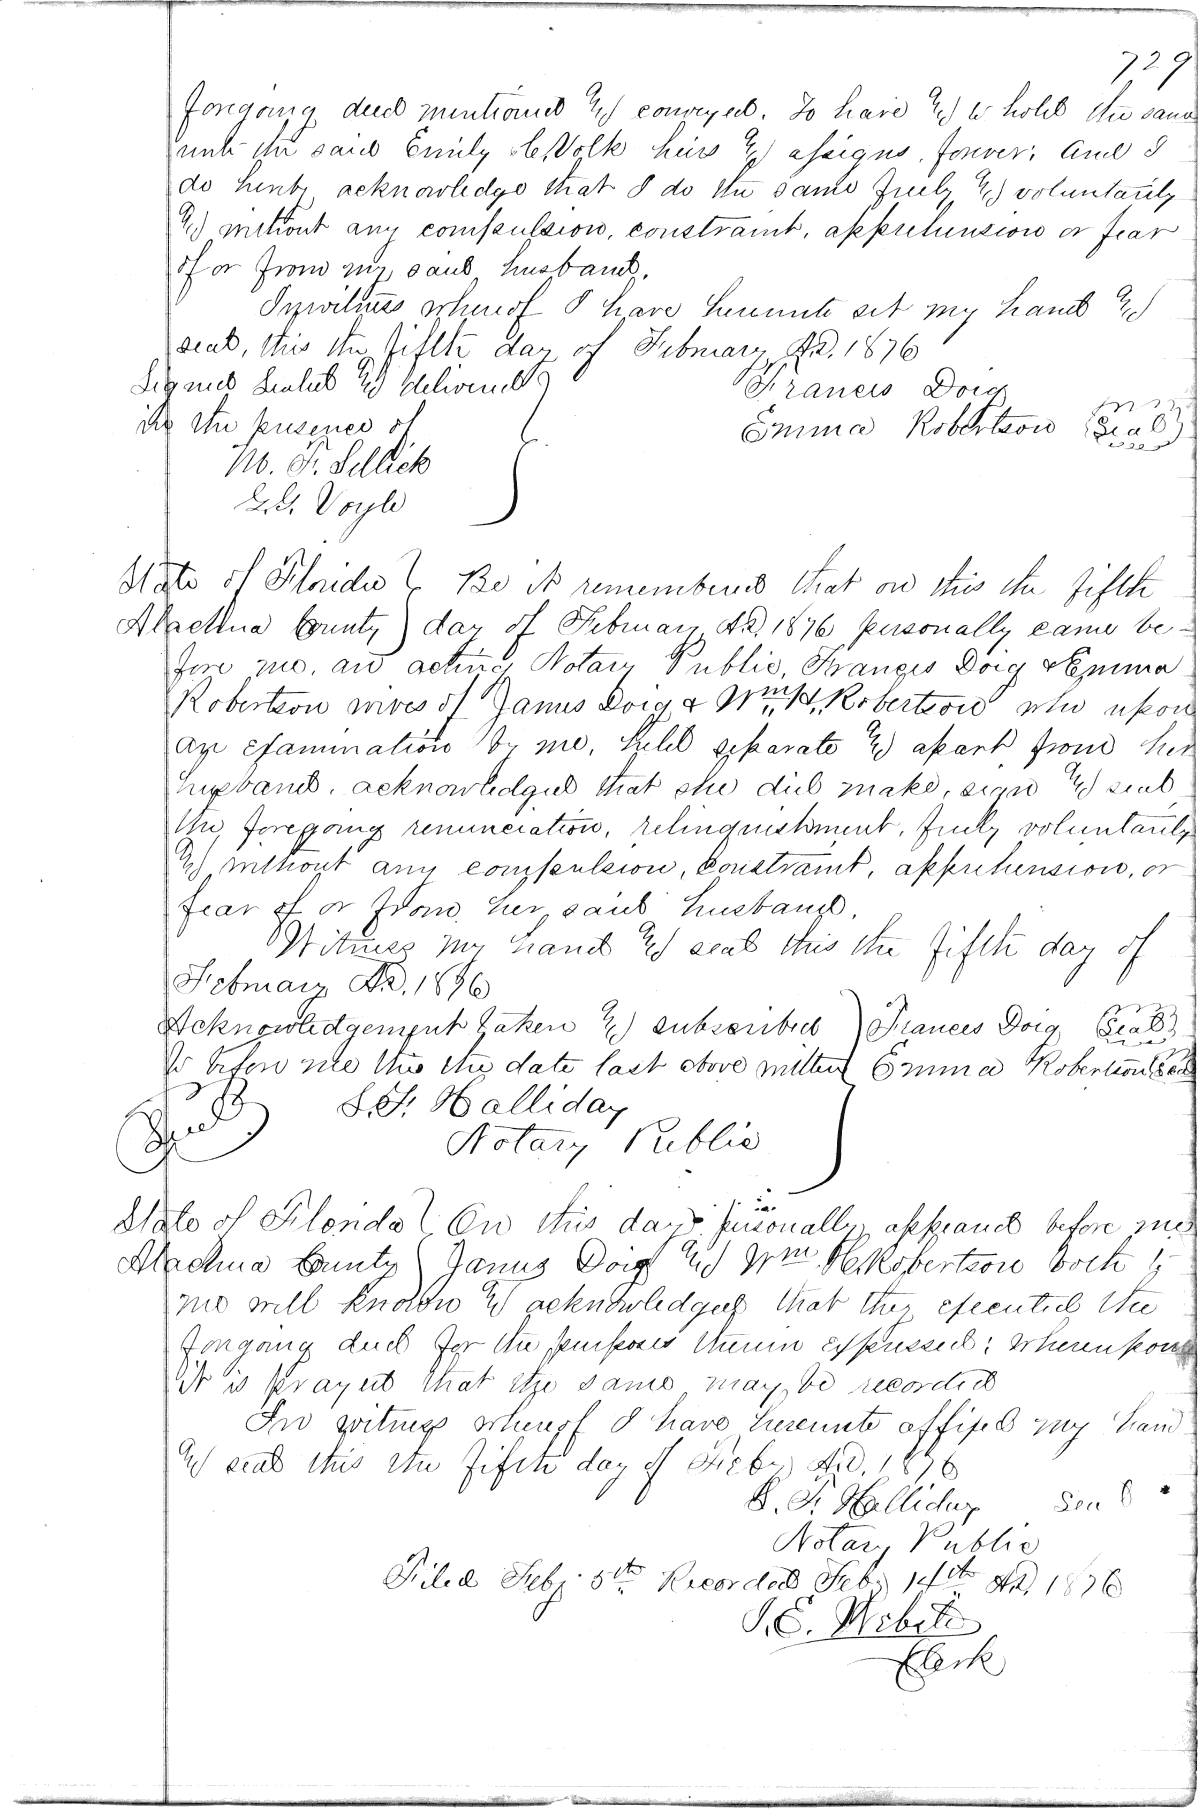 729
foregoing deed mentioned & conveyed. To have & to hold the same
unto the said Emily C. Volk heirs & assigns, forever; And I
do hereby acknowledge that I do the same freely & voluntarily
& without any compulsion, constraint, apprehension or fear
of or from my said husband.
In witness whereof I have hereunto set my hand &
seal, this the fifth day of February A.D. 1876
Signed Sealed & delivered Francis Doig
in the presence of Emma Robertson (Seal)
M. F. Sellick
G.G. Voyle
State of Florida Be it remembered that on this the fifth
Alachua County day of February A.D. 1876 personally came be-
fore me, an acting Notary Public, Francis Doig & Emma
Robertson wives of James Doig & Wm. H. Robertson who upon
an examination by me, held separate & apart from her
husband, acknowledged that she did make, sign & seal
the foregoing renunciation, relinquishment, freely voluntarily
& without any compulsion, constraint, apprehension, or
fear of or from her said husband.
Witness my hand & seal this the fifth day of
February A.D. 1876
Acknowledgement taken & subscribed Frances Doig (Seal)
to before me this the date last above written Emma Robertson (Seal)
(Seal) S.F. Halliday
Notary Public
State of Florida On this day personally appeared before me
Alachua County James Doig & Wm. H. Robertson both to
me well known & acknowledged that they executed the
foregoing deed for the purposes therein expressed; whereupon
it is prayed that the same may be recorded
In witness whereof I have hereunto affixed my hand
& seal this the fifth day of Feby A.D. 1876
S. F. Halliday Seal
Notary Public
Filed Feby 5th Recorded Feby 14th A.D. 1876
J. E. Webster
Clerk